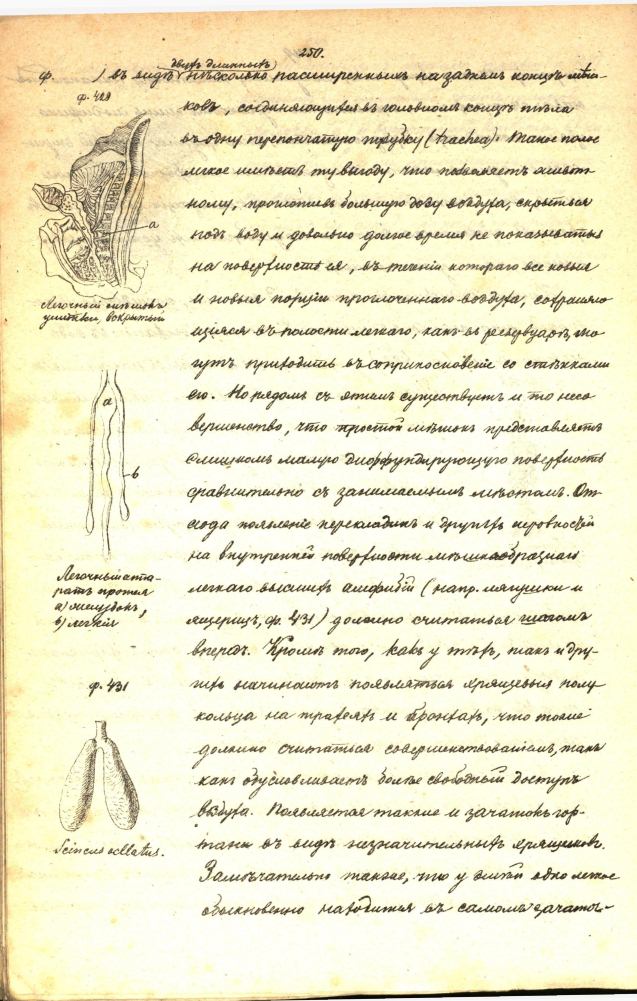 250.
двухъ длинныхъ
ф. ) въ видѣ нѣсколько расширенныхъ на заднемъ концѣ мѣш-
ковъ, соединяющихся въ головномъ концѣ тѣла
въ одну перепончатую трубку (trachea). Такое полое
легкое имѣетъ ту выгоду, что позволяетъ живот-
ному, проглотивъ большую дозу воздуха, скрыться
подъ воду и довольно долгое время не показываться
на поверхность ея, въ теченіи котораго все новыя
и новыя порціи проглоченнаго воздуха, сохраняю-
щіяся въ полости легкаго, какъ въ резервуарѣ, мо-
гутъ приходить въ соприкосновеніе со стѣнками
его. Но рядомъ съ этимъ существуетъ и то несо-
вершенство, что простой мѣшокъ представляетъ
слишкомъ малую диффундирующую поверхность
сравнительно съ занимаемымъ мѣстомъ. От-
сюда появленіе перекладинъ и другихъ неровностей
на внутренней поверхности мѣшкообразнаго
легкаго высшихъ амфибій (напр. лягушки и
ящерицъ, ф. 431) должно считаться шагомъ
впередъ. Кромѣ того, какъ у тѣхъ, такъ и дру-
гихъ начинаютъ появляться хрящевыя полу-
кольца на трахеяхъ и бронхахъ, что тоже
должно считаться совершенствованіемъ, такъ
какъ обусловливаетъ болѣе свободный доступъ
воздуха. Появляется также и зачатокъ гор-
тани въ видѣ незначительныхъ хрящиковъ.
Замѣчательно также, что у змѣй одно легкое
обыкновенно находится въ самомъ зачаточ-
ф. 429
a
Легочный мѣшокъ
улитки, вскрытый
a
b
Легочный аппа-
ратъ протея
a) желудокъ,
b) легкія
ф. 431
Scincus ocellatus.